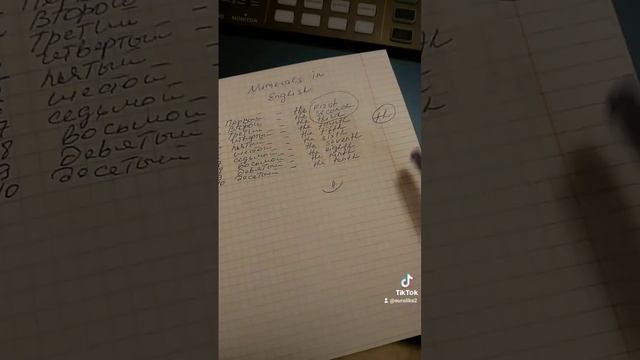 MONITOR
Numerals in
English
Первый - the first
Второй - the second
Третий - the third
четвёртый - the fourth
пятый - the fifth
шестой - the sixth
седьмой - the seventh
восьмой - the eighth
9 Девятый - the ninth
10 десятый - the tenth
th
Второй
Третий
четвёртый
пятый
шестой
7 седьмой
8 восьмой
9 Девятый
10 десятый
TikTok
@eurolika2